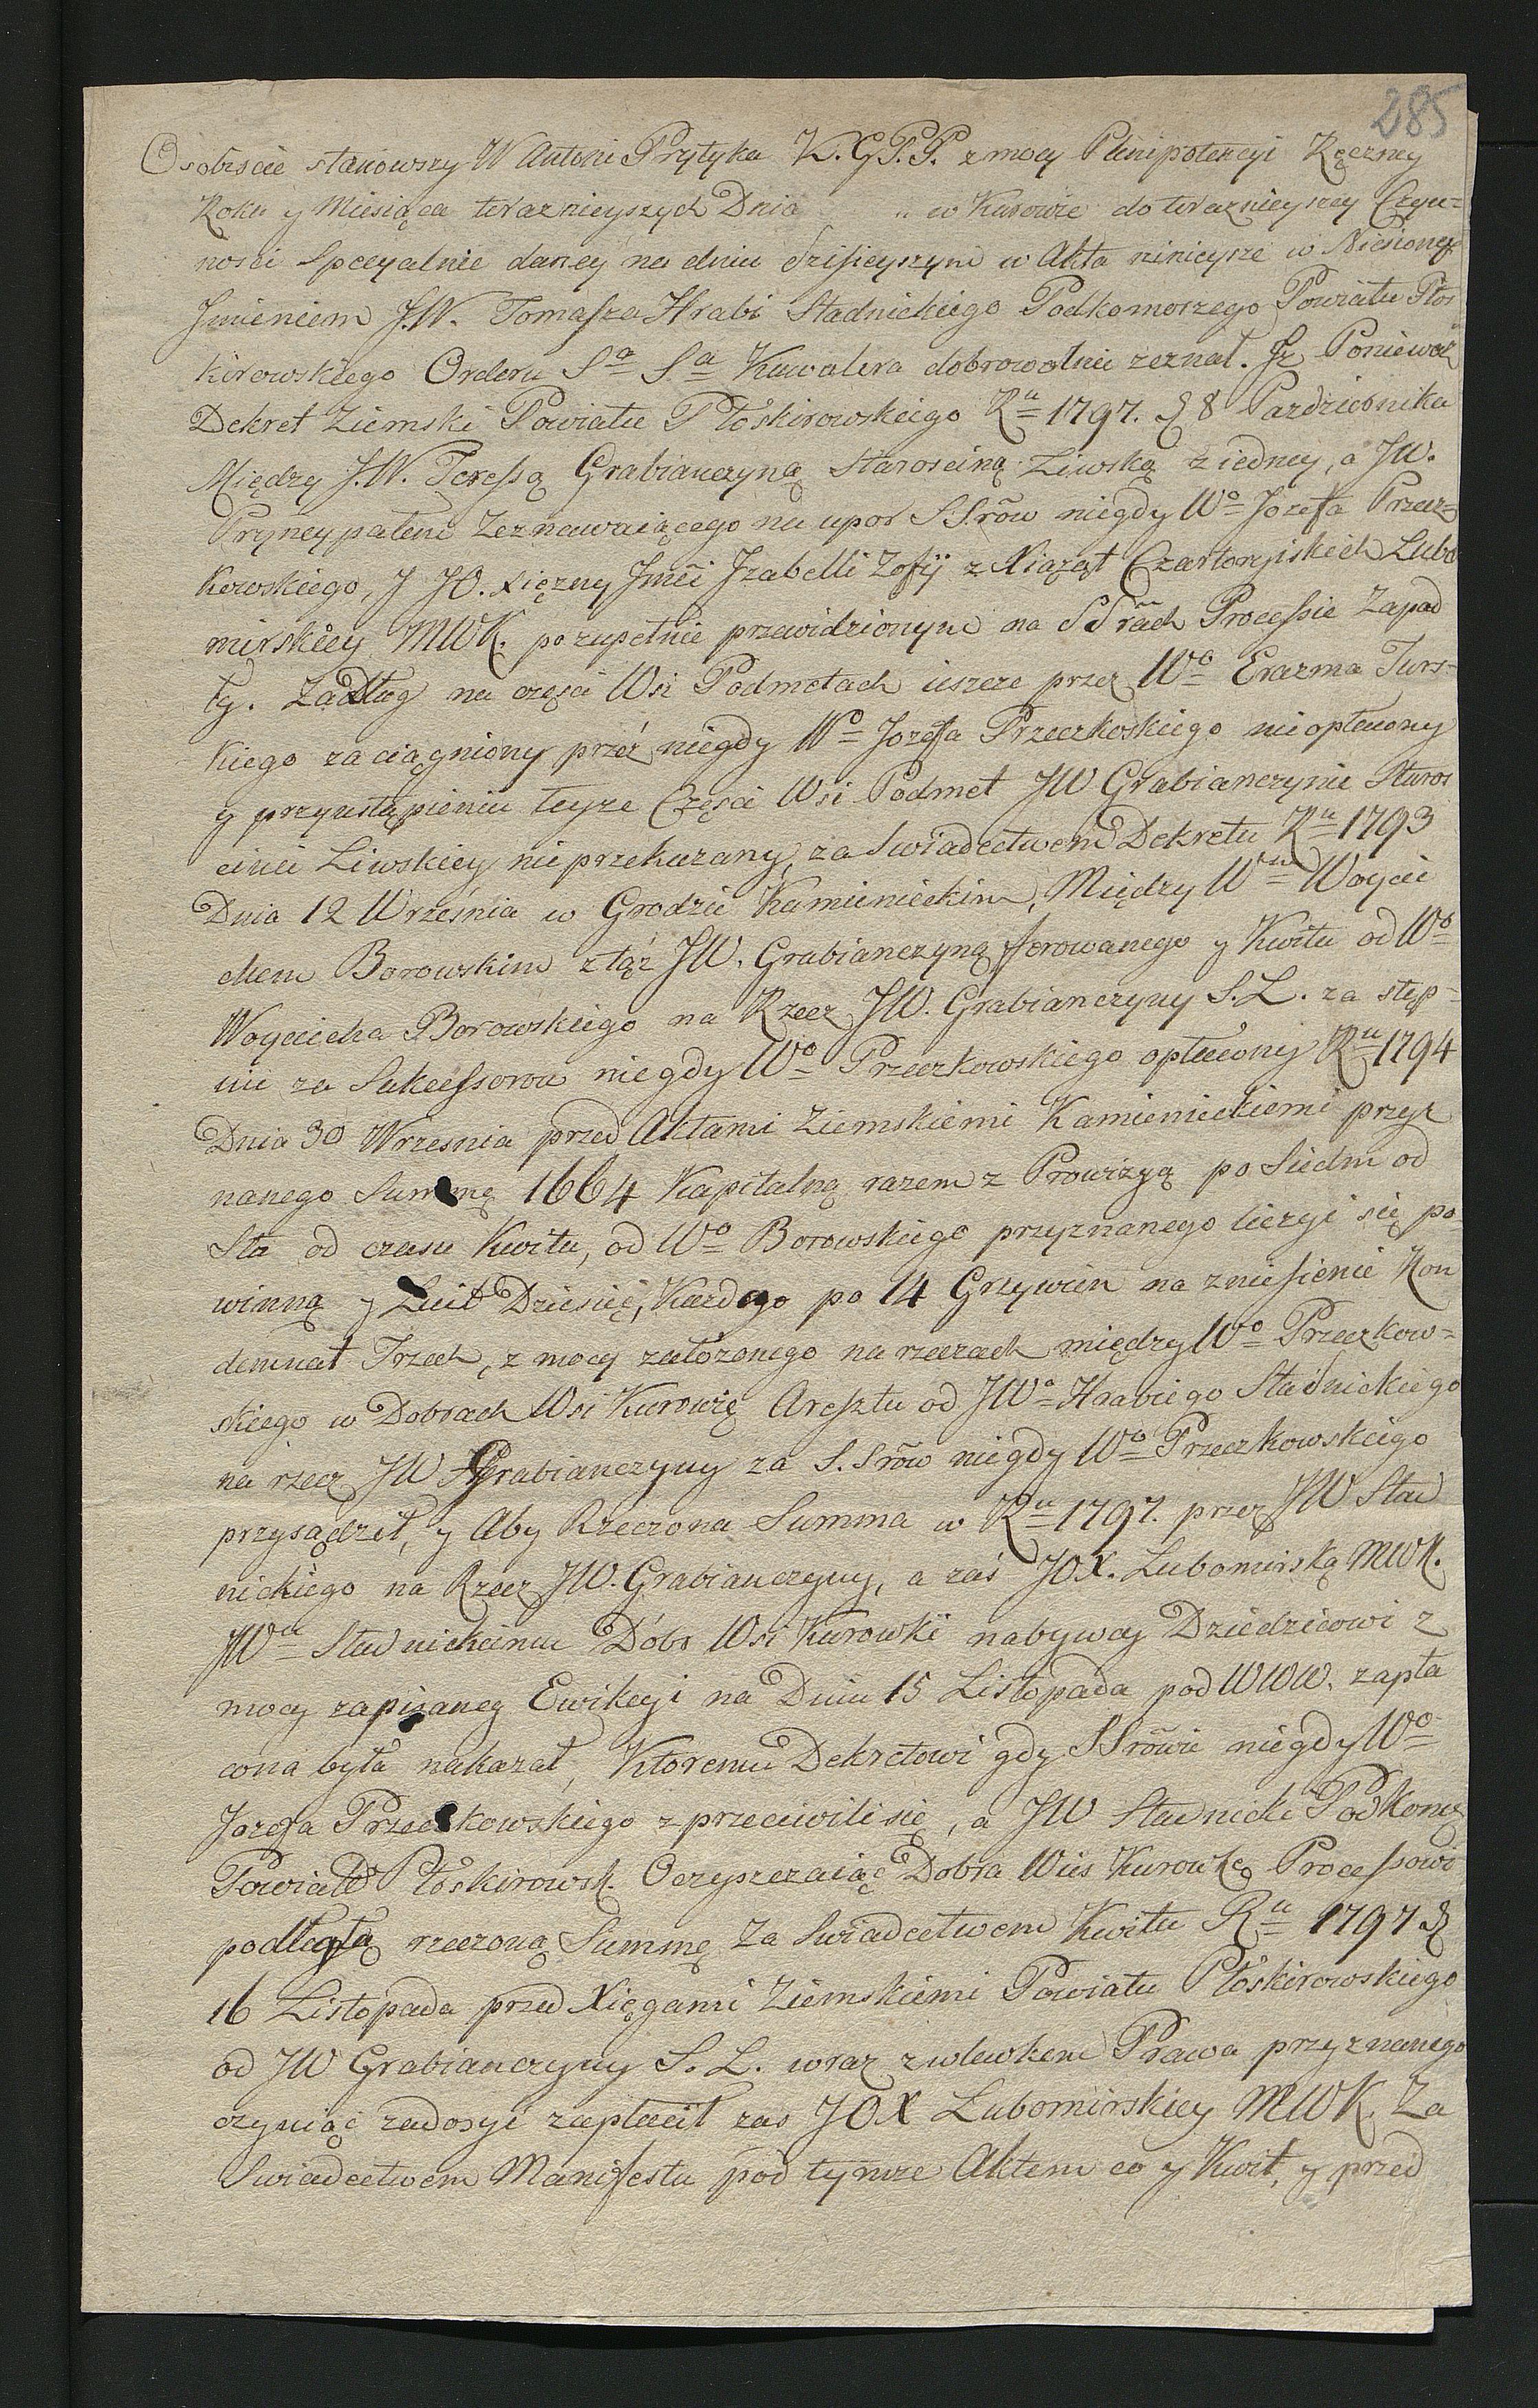 285
Osobiscie stanowszy W Antoni Prytyka K. G P. P. z mocy Plenipotencyi Ręczney
Roku y Miesiąca teraznieyszych Dnia „ w Kurowie do teraznieyszey Czyn=
nosci specyalnie daney na dniu dzisieyszym w Akta ninieysze w Niesioney
Jmieniem J.W. Tomasza Hrabi Stadnickiego Podkomorzego Powiatu Płos
kirowskiego Orderu Sª Sª Kawalera dobrowolnie zeznał. Jż Poniewaz
Dekret Ziemski Powiatu Płoskirowskiego Rᵘ 1797. D 8 Pazdziernika
Między J.W. Teressą Grabianczyną Starosciną Liwską z iedney, a JW.
Pryncypałem Zeznawaiącego na upor SSrów niegdy Wº Jozefa Przecz=
kowskiego, J JO. Xiężny Jmći Jzabelli Zofij z Xiążąt Czartoryiskich Lubo
mirskiey MWK. po zupełnie przewidzionym na SSrach Processie Zapad
ły. Za dług na częsci Wsi Podmetach ieszcze przez Wº Erazma Turs-
kiego zaciągniony przez niegdy Wº Jozefa Przeczkoskiego nieopłacony
y przy ustąpieniu teyże Częsci Wsi Podmet JW Grabianczynie Staros
cinei Liwskiey nieprzekazany, za Swiadectwem Dekretu Rᵘ 1793
Dnia 12 Września w Grodzie Kamienieckim, Między Wᵐ Woycie
chem Borowskim z tąż JW. Grabianczyną ferowanego y Kwitu od Wº
Woyciecha Borowskiego na Rzecz JW. Grabianczyny S. L. za stęp-
nie za Sukcessorow niegdy Wº Przeczkowskiego opłacony Rᵘ 1794
Dnia 30 Wrzesnia przed Aktami Ziemskiemi Kamienieckiemi przyz
nanego Summę 1664 Kapitalną razem z Prowizyą po Siedm od
Sta od czasu Kwitu, od Wº Borowskiego przyznanego liczyć się po
winną y Luit Dziesięć, Każdego po 14 Grzywien na zniesienie Kon
demnat Trzech, z mocy założonego na rzeczach między Wº Przeczkow=
skiego w Dobrach Wsi Kurowie Aresztu od JWº Hrabiego Stadnickiego
na rzecz JW Grabianczyny za S. Srów niegdy Wº Przeczkowskiego
przysądził, y Aby Rzeczona Summa w Rᵘ 1797. przez JW Stad
nickiego na Rzecz JW. Grabianczyny, a zaś JOX. Lubomirską MWK.
JWᵘ Stadnickiemu Dóbr Wsi Kurowki nabywcy Dziedzicowi z
mocy zapisaney Ewikcyi na Dniu 15 Listopada pod WWW. zapła
cona była nakazał, Ktoremu Dekretowi gdy SSrówie niegdy Wº
Jozefa Przeczkowskiego zprzeciwili się, a JW Stadnicki Podkom.
Powiatu Płoskirowsk. Oczyszczaiąc Dobra Wieś Kurowkę Processowi
podległą rzeczoną Summę Za Swiadectwem Kwitu Rᵘ 1797 D
16 Listopada przed Xięgami Ziemskiemi Powiatu Płoskirowskiego
od JW Grabianczyny S. L. wraz z wlewkem Prawa przyznanego
czyniąc zadosyć zapłacił zas JOX Lubomirskiey MWK. Za
Swiadectwem Manifestu pod tymże Aktem co y Kwit, y przed